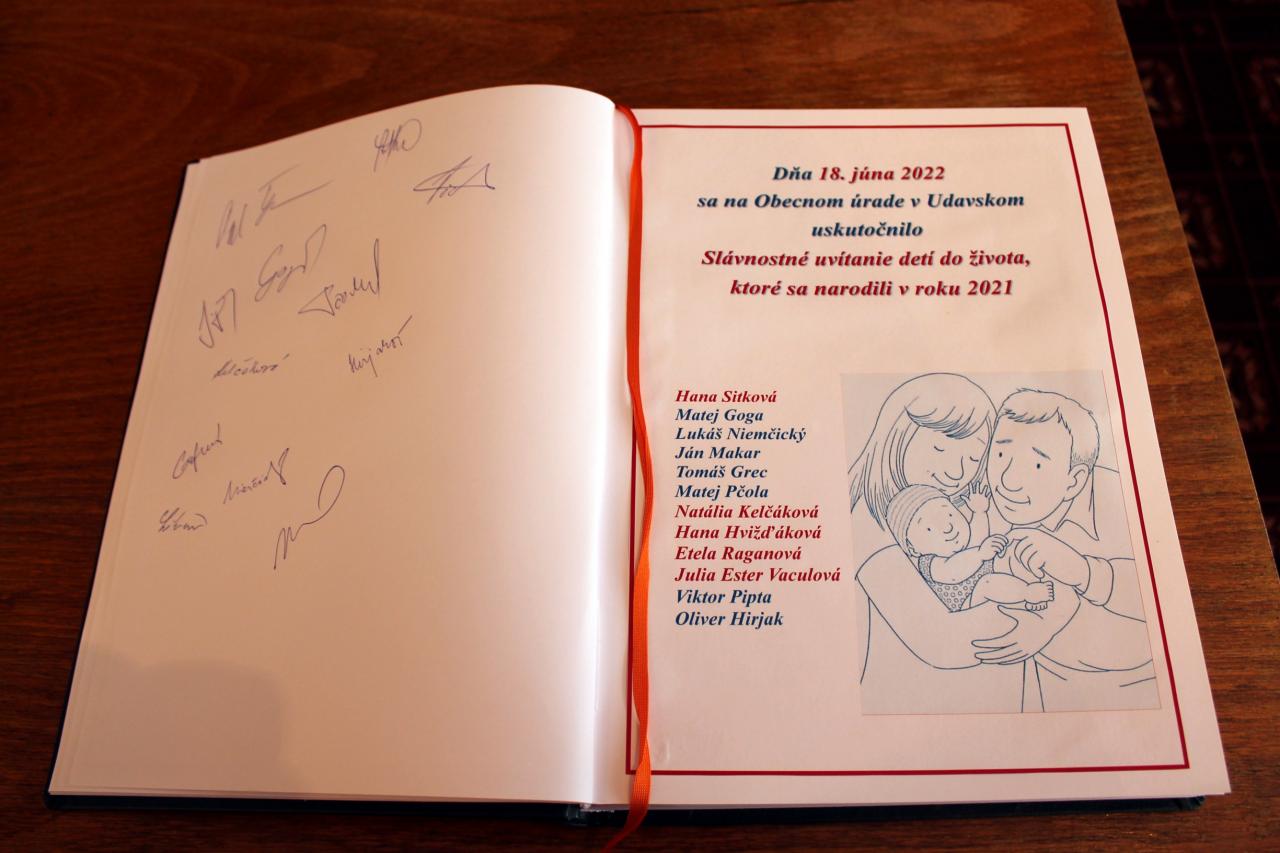 Dňa 18. júna 2022
sa na Obecnom úrade v Udavskom
uskutočnilo
Slávnostné uvítanie detí do života,
ktoré sa narodili v roku 2021
Hana Sitková
Matej Goga
Lukáš Niemčický
Ján Makar
Tomáš Grec
Matej Pčola
Natália Kelčáková
Hana Hvižďáková
Etela Raganová
Julia Ester Vaculová
Viktor Pipta
Oliver Hirjak